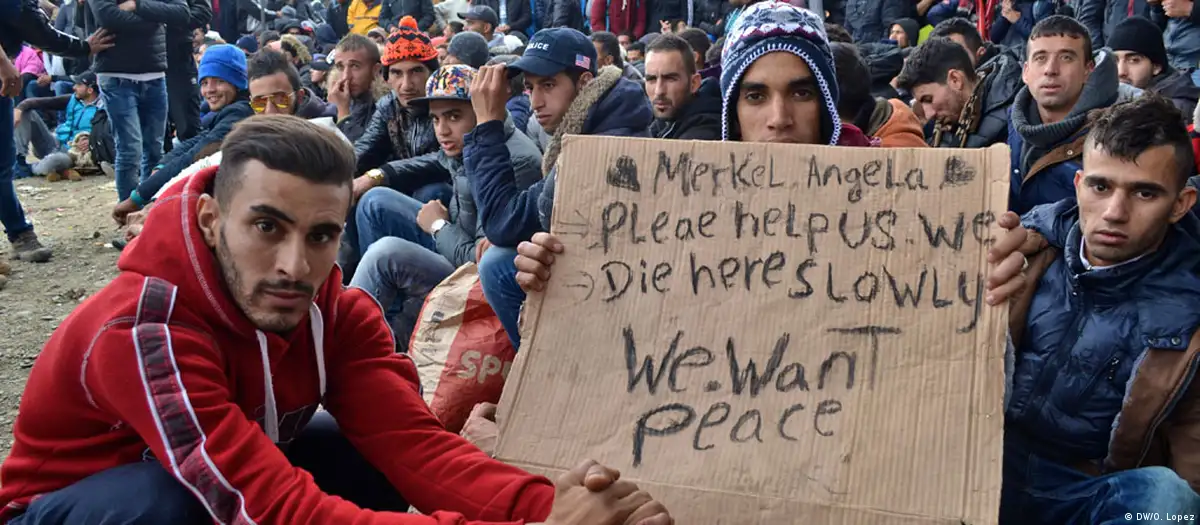 POLICE
Merkel Angela
Pleae help us. we
Die here slowly
We. Want
peace
SP
© DW/O. Lopez